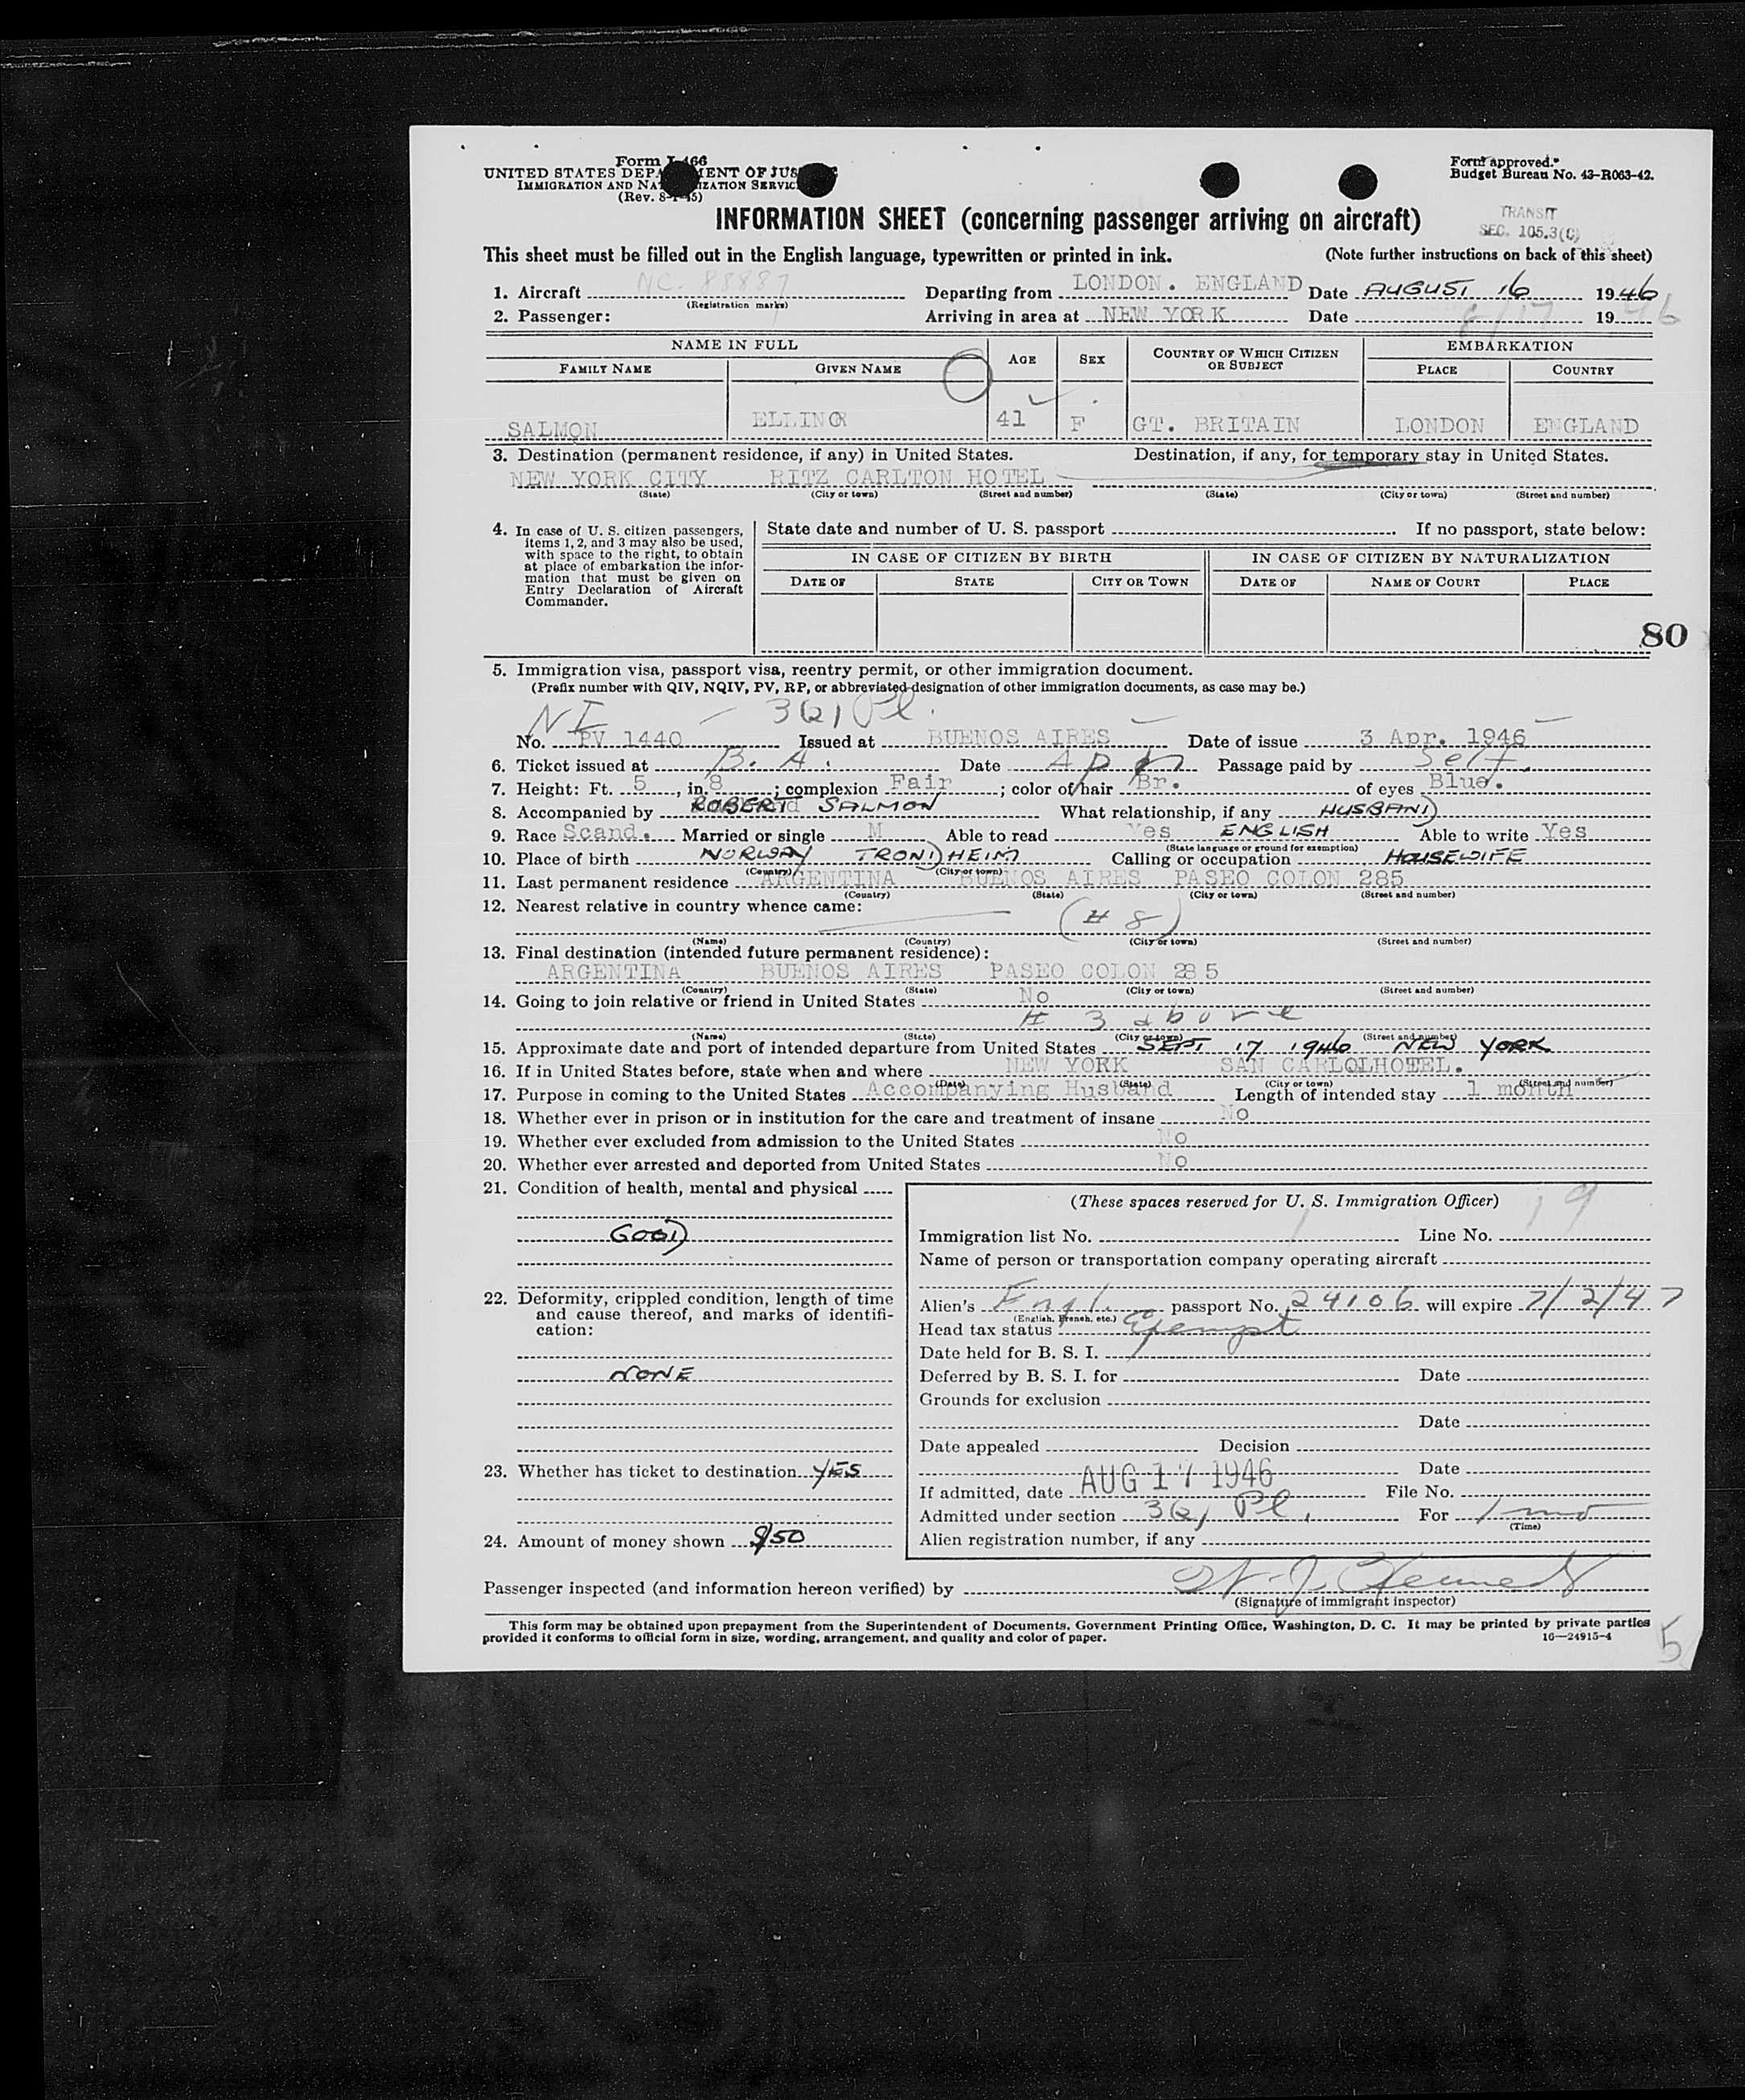 Form I-466
UNITED STATES DEPARTMENT OF JUSTICE
IMMIGRATION AND NATURALIZATION SERVICE
(Rev. 8-1-45)
Form approved.
Budget Bureau No. 43-R063-42.
INFORMATION SHEET (concerning passenger arriving on aircraft)
TRANSIT
SEC. 105.3(C)
This sheet must be filled out in the English language, typewritten or printed in ink. (Note further instructions on back of this sheet)
1. Aircraft NC. 88887 Departing from LONDON. ENGLAND Date AUGUST 16 1946
(Registration marks)
2. Passenger: Arriving in area at NEW YORK Date 8/17 1946
NAME IN FULL AGE SEX COUNTRY OF WHICH CITIZEN OR SUBJECT EMBARKATION
FAMILY NAME GIVEN NAME PLACE COUNTRY
SALMON ELLINOR 41 F GT. BRITAIN LONDON ENGLAND
3. Destination (permanent residence, if any) in United States. Destination, if any, for temporary stay in United States.
NEW YORK CITY RITZ CARLTON HOTEL
(State) (City or town) (Street and number) (State) (City or town) (Street and number)
4. In case of U. S. citizen passengers, items 1, 2, and 3 may also be used, with space to the right, to obtain at place of embarkation the information that must be given on Entry Declaration of Aircraft Commander.
State date and number of U. S. passport If no passport, state below:
IN CASE OF CITIZEN BY BIRTH IN CASE OF CITIZEN BY NATURALIZATION
DATE OF STATE CITY OR TOWN DATE OF NAME OF COURT PLACE
80
5. Immigration visa, passport visa, reentry permit, or other immigration document.
(Prefix number with QIV, NQIV, PV, RP, or abbreviated designation of other immigration documents, as case may be.)
NI 3(2) Pl.
No. PV 1440 Issued at BUENOS AIRES Date of issue 3 Apr. 1946
6. Ticket issued at B. A. Date Apr Passage paid by Self.
7. Height: Ft. 5, in. 8; complexion Fair; color of hair Br. of eyes Blue.
8. Accompanied by ROBERT SALMON What relationship, if any HUSBAND
9. Race Scand. Married or single M Able to read Yes ENGLISH Able to write Yes
(State language or ground for exemption)
10. Place of birth NORWAY TRONDHEIM Calling or occupation HOUSEWIFE
(Country) (City or town)
11. Last permanent residence ARGENTINA BUENOS AIRES PASEO COLON 285
(Country) (State) (City or town) (Street and number)
12. Nearest relative in country whence came: (# 8)
(Name) (Country) (City or town) (Street and number)
13. Final destination (intended future permanent residence):
ARGENTINA BUENOS AIRES PASEO COLON 285
(Country) (State) (City or town) (Street and number)
14. Going to join relative or friend in United States No
# 3 above
(Name) (State) (City or town) (Street and number)
15. Approximate date and port of intended departure from United States SEPT 17 1946 NEW YORK
16. If in United States before, state when and where NEW YORK SAN CARLOLHOTEL.
(Date) (State) (City or town) (Street and number)
17. Purpose in coming to the United States Accompanying Husband Length of intended stay 1 month
18. Whether ever in prison or in institution for the care and treatment of insane No
19. Whether ever excluded from admission to the United States No
20. Whether ever arrested and deported from United States No
21. Condition of health, mental and physical
GOOD
22. Deformity, crippled condition, length of time and cause thereof, and marks of identification:
NONE
23. Whether has ticket to destination YES
24. Amount of money shown $150
(These spaces reserved for U. S. Immigration Officer)
Immigration list No. 1 Line No. 19
Name of person or transportation company operating aircraft
Alien's Engl. passport No. 24106 will expire 7/2/47
(English, French, etc.)
Head tax status Exempt
Date held for B. S. I.
Deferred by B. S. I. for Date
Grounds for exclusion
Date
Date appealed Decision
Date
If admitted, date AUG 17 1946 File No.
Admitted under section 3(2) Pl. For 1 mo
(Time)
Alien registration number, if any
Passenger inspected (and information hereon verified) by W. J. Kennedy
(Signature of immigrant inspector)
This form may be obtained upon prepayment from the Superintendent of Documents, Government Printing Office, Washington, D. C. It may be printed by private parties
provided it conforms to official form in size, wording, arrangement, and quality and color of paper. 16—24915-4
5